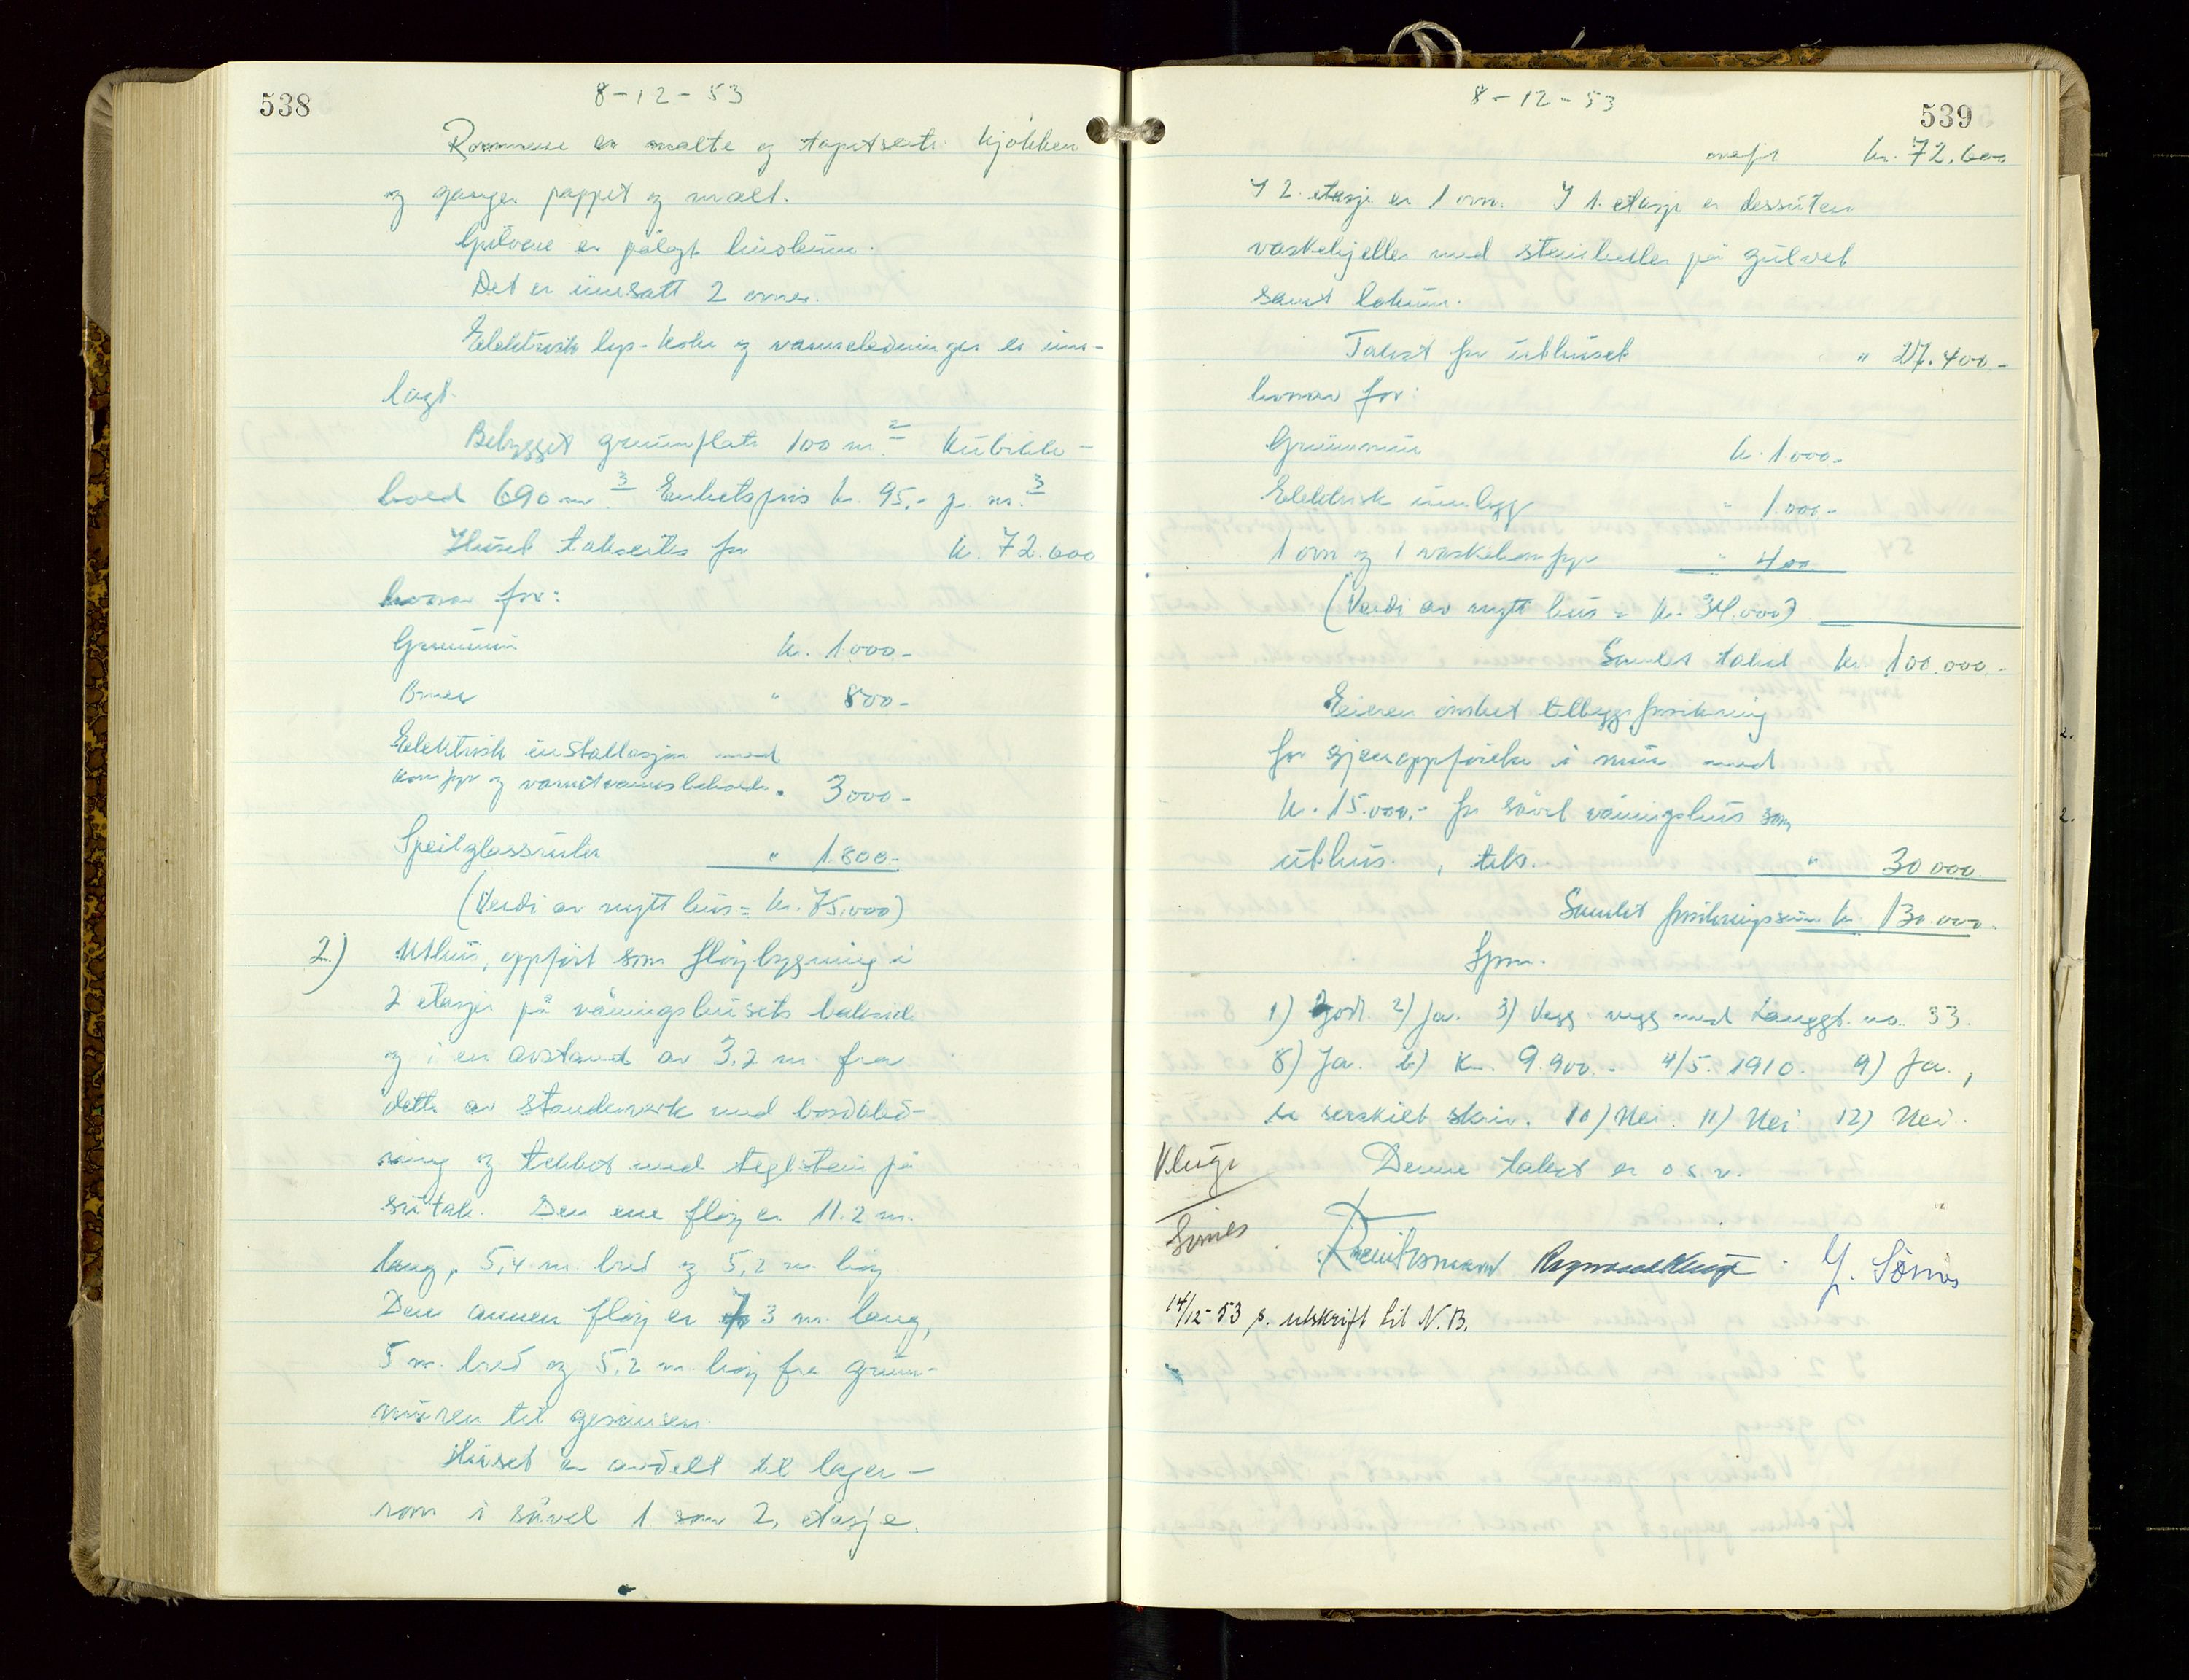 538
8-12-53
Rommene er malte og tapetserte. Kjøkken
og ganger pappet og malt.
Gulvene er pålagt linoleum.
Det er innsatt 2 ovner.
Elektrisk lys- koke og varmeledninger er inn-
lagt.
Bebygget grunnflate 100 m.² Kubikk-
hold 690 m.³ Enhetspris kr. 95,- pr. m.³
Huset takseres for kr. 72.600
hvorav for:
Grunnmur kr. 1.000-
Ovner " 800-
Elektrisk installasjon med
komfyr og varmtvannsbehold. " 3000-
Speilglassruter " 1.800-
(Verdi av nytt hus = kr. 75.000)
2) Uthus, oppført som fløybygning i
2 etasjer på våningshusets bakside
og i en avstand av 3,2 m. fra
dette av stenderverk med bordkled-
ning og tekket med teglstein på
sutak. Den ene fløy er 11.2 m.
lang, 5,4 m. bred og 5,2 m. høy
Den annen fløy er 7,3 m. lang,
5 m. bred og 5,2 m. høy fra grunn-
muren til gesimsen.
Huset er avdelt til lager-
rom i såvel 1. som 2. etasje.
539
8-12-53
overført kr. 72.600
I 2. etasje er 1 ovn. I 1. etasje er dessuten
vaskekjeller med steinheller på gulvet
samt lokum.
Takst for uthuset " 27.400.-
hvorav for:
Grunnmur kr. 1.000-
Elektrisk innlegg " 1.000-
1 ovn og 1 vaskekomfyr " 400
(Verdi av nytt hus = kr. 34.000)
Samlet takst kr. 100.000.-
Eieren ønsket tilleggsforsikring
for gjenoppførelse i mur med
kr. 15.000.- for såvel våningshus som
uthus, tils. " 30000.
Samlet forsikringssum kr. 130.000-
Spm.
1) God. 2) Ja. 3) Vegg i vegg med Langgt. no. 33.
8) Ja. b) Kr. 9.900.- 4/5. 1910. 9) Ja.,
se serskilt skriv. 10) Nei. 11) Nei 12) Nei.
Kluge Denne takst er o s v.
Sømes
Ragnvald Kluge Y. Sømes
14/12-53 s. utskrift til N.B.